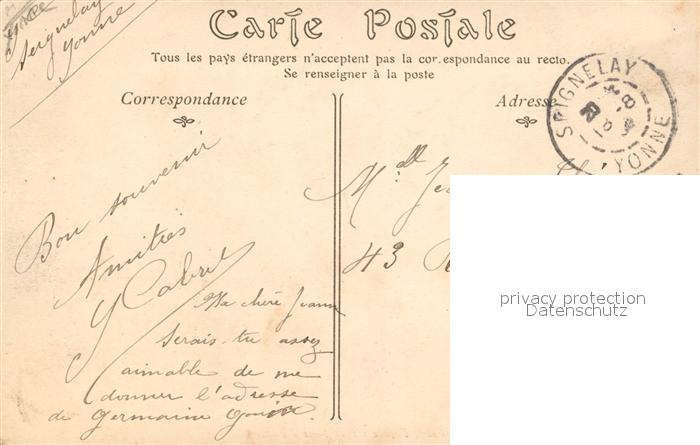 Seignelay
Yonne
Carte Postale
Tous les pays étrangers n'acceptent pas la cor.espondance au recto.
Se renseigner à la poste
Correspondance
Adresse
SEIGNELAY
YONNE
Bon souvenir
Amitiés
Y Cabril
Ma chère Jeanne
serais-tu assez
aimable de me
donner l'adresse
de Germaine
Mlle
43
privacy protection
Datenschutz